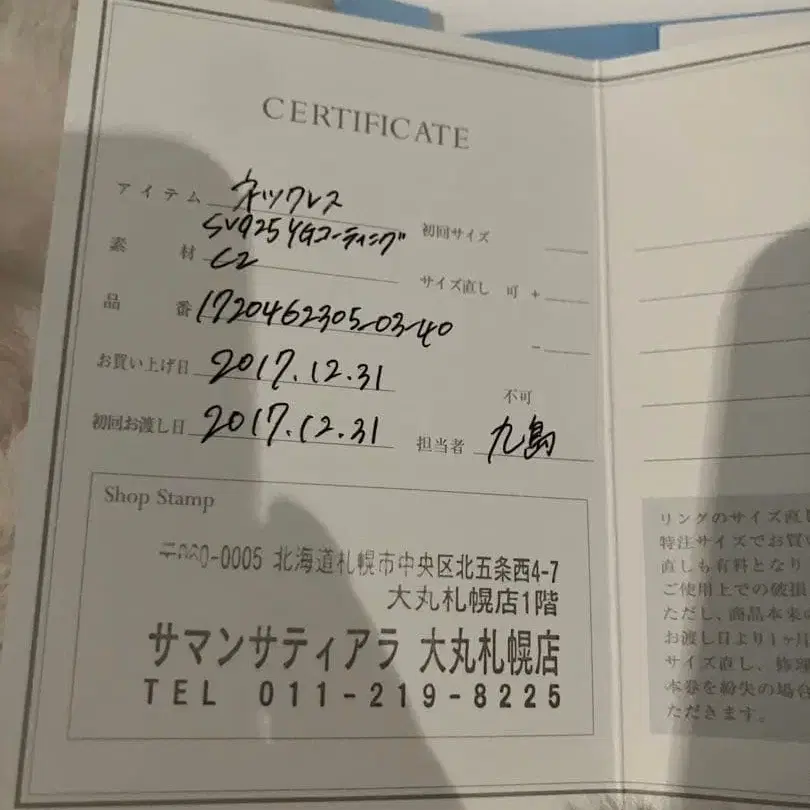 CERTIFICATE
アイテム ネックレス
SV925 YGコーティング
素材 CZ
品番 1720462305-03-40
お買い上げ日 2017.12.31
初回お渡し日 2017.12.31
初回サイズ
サイズ直し 可 +
-
不可
担当者 九島
Shop Stamp
0-0005 北海道札幌市中央区北五条西4-7
大丸札幌店1階
サマンサティアラ 大丸札幌店
TEL 011-219-8225
リングのサイズ直し
特注サイズでお買い
直しも有料となり
ご使用上での破損
ただし、商品本来の
お渡し日より1ヶ月
サイズ直し、修理
本券を紛失の場合
ただきます。